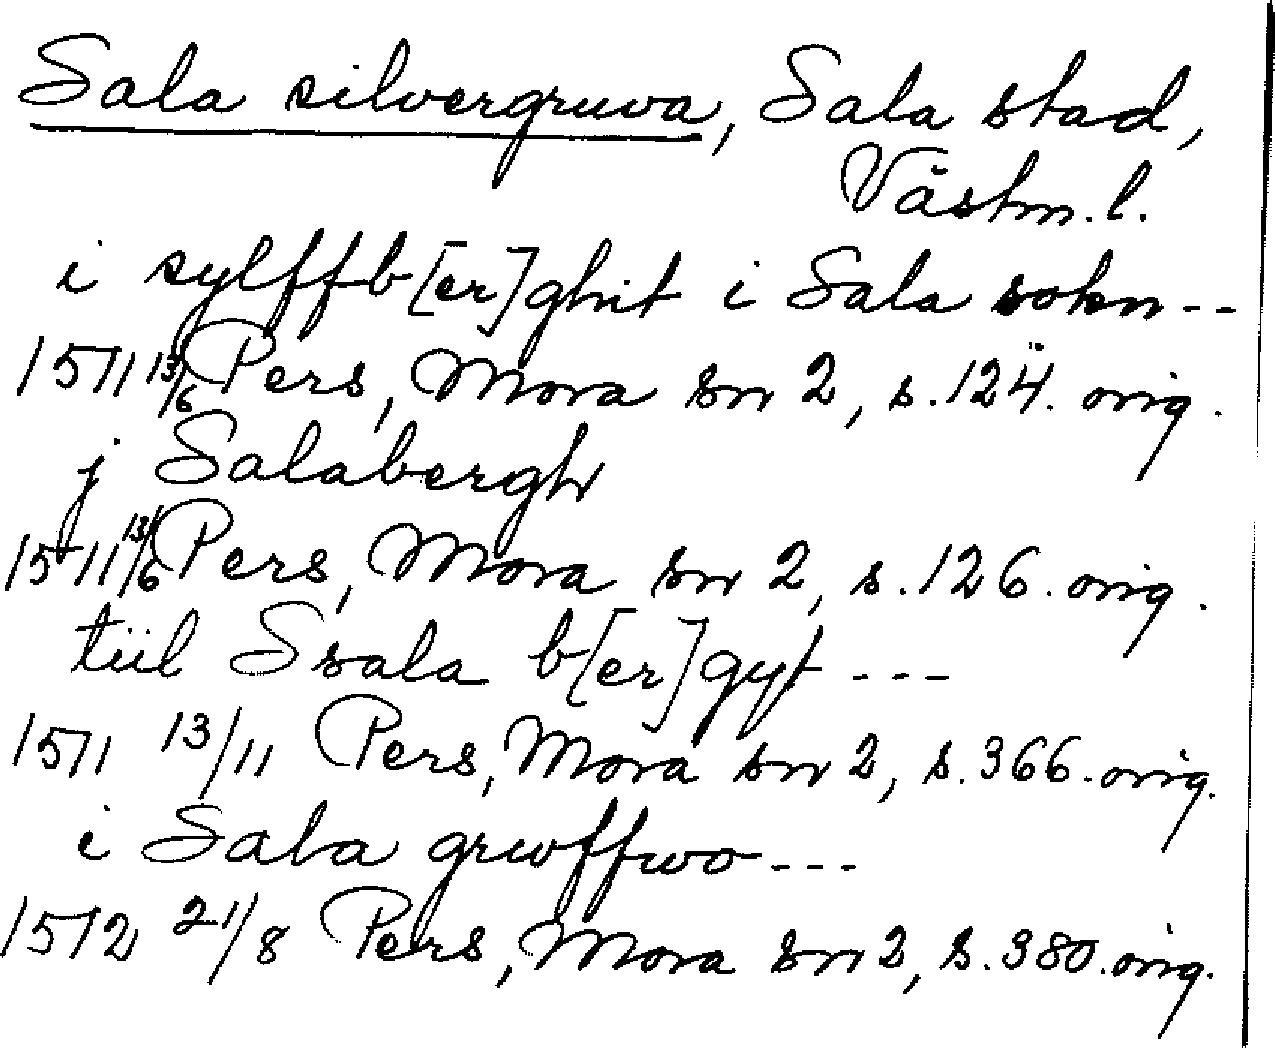 Sala silvergruva, Sala stad,
Västm. l.
i sylffb[er]ghit i Sala sokn --
1511 13/6 Pers, Mora sn 2, s. 124. orig.
j Salabergh
1511 13/6 Pers, Mora sn 2, s. 126. orig.
tiil Ssala b[er]gyt ---
1511 13/11 Pers, Mora sn 2, s. 366. orig.
i Sala grwffwo ---
1512 21/8 Pers, Mora sn 2, s. 380. orig.